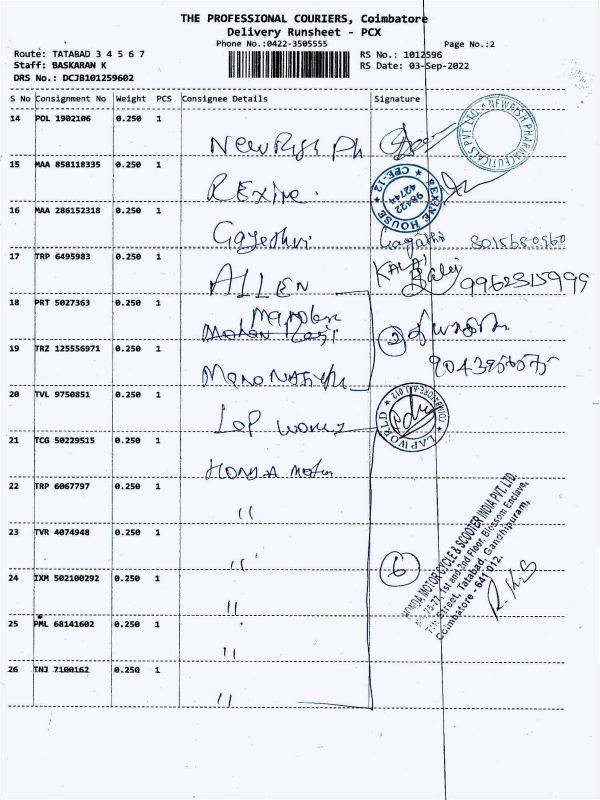 THE PROFESSIONAL COURIERS, Coimbatore
Delivery Runsheet - PCX
Phone No.:0422-3505555
Page No.:2
Route: TATABAD 3 4 5 6 7
RS No.: 1012596
Staff: BASKARAN K
RS Date: 03-Sep-2022
DRS No.: DCJB101259602
S No Consignment No Weight PCS Consignee Details Signature
14 POL 1902106 0.250 1
15 MAA 858118335 0.250 1
REXINE HOUSE
CBE-12
98422
42744
16 MAA 286152318 0.250 1
Gayathri
17 TRP 6495983 0.250 1
ALLEN 9962315999
18 PRT 5027363 0.250 1
2
19 TRZ 125556971 0.250 1
20 TVL 9750851 0.250 1
Lap World
LAP WORLD
21 TCG 50229515 0.250 1
HONDA Motor
22 TRP 6067797 0.250 1
"
23 TVR 4074948 0.250 1
"
24 IXM 502100292 0.250 1
"
6
HONDA MOTOR CYCLE & SCOOTER INDIA PVT. LTD.
1st and 2nd Floor, Blossom Enclave,
7th Street, Tatabad, Gandhipuram,
Coimbatore - 641 012.
25 PML 68141602 0.250 1
"
26 TNJ 7100162 0.250 1
"